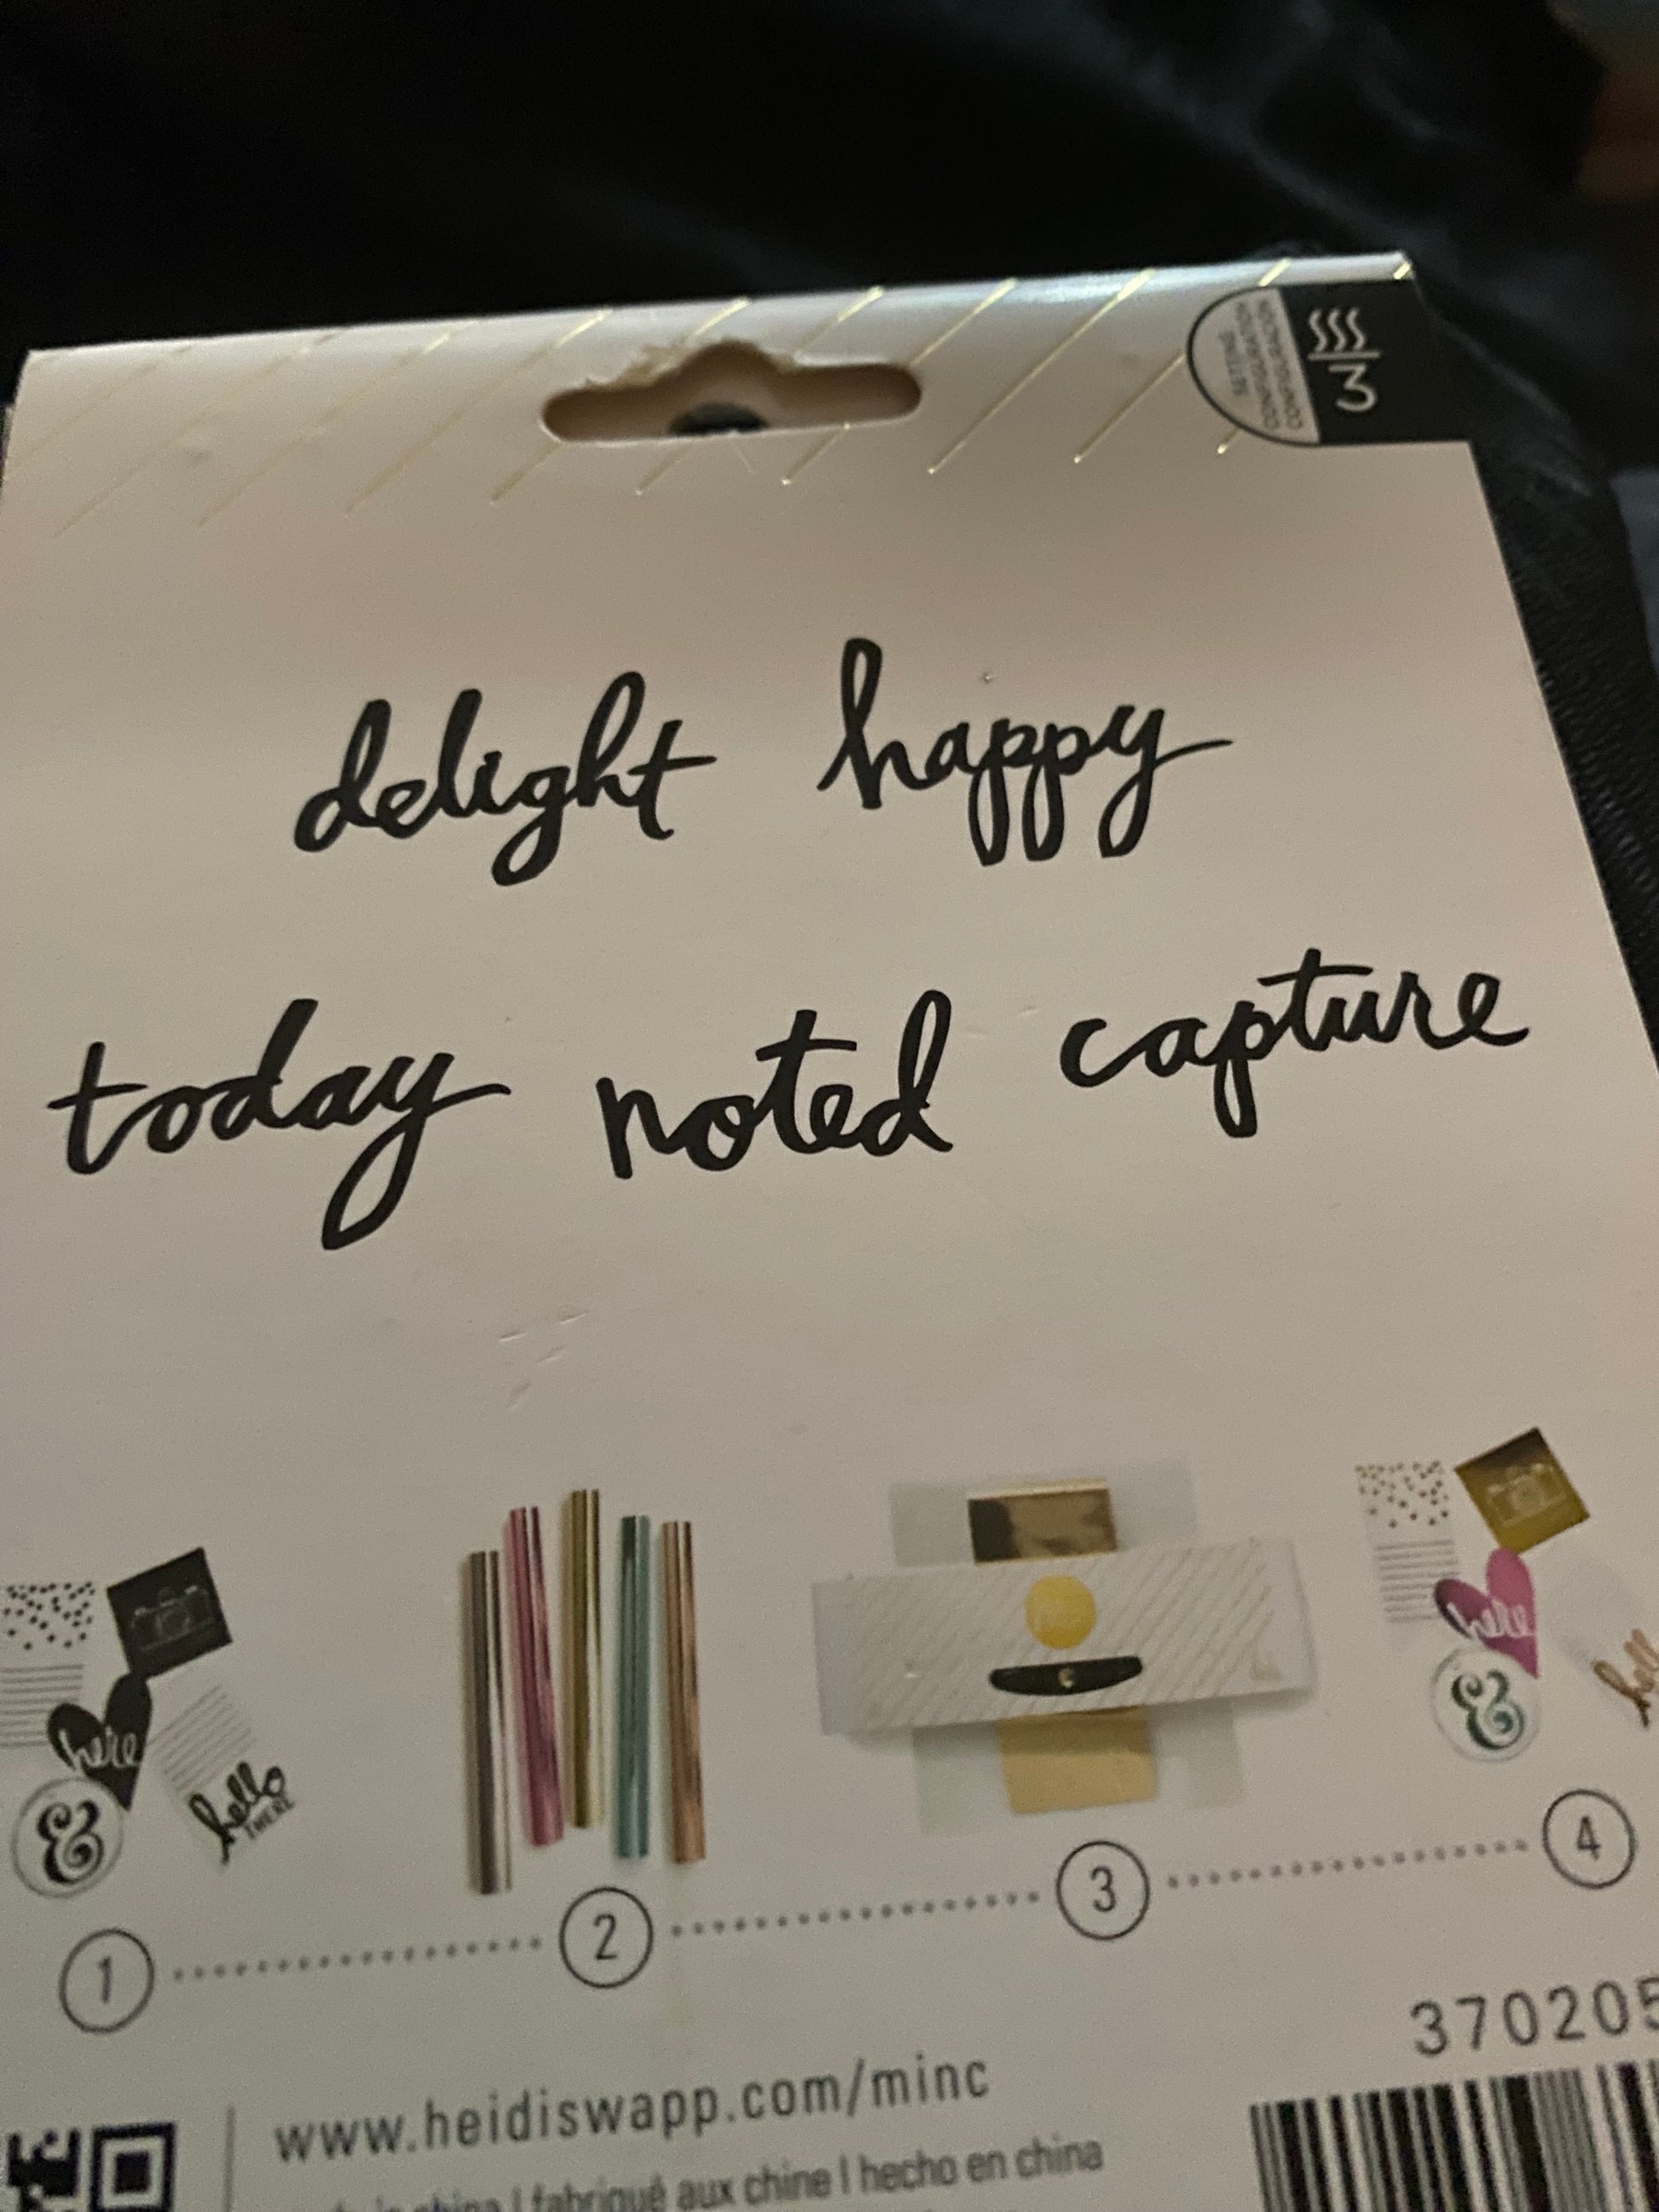 3
delight happy
today noted capture
here
&
hello
THERE
here
&
1
2
3
4
370205
www.heidiswapp.com/minc
china | fabriqué aux chine | hecho en china